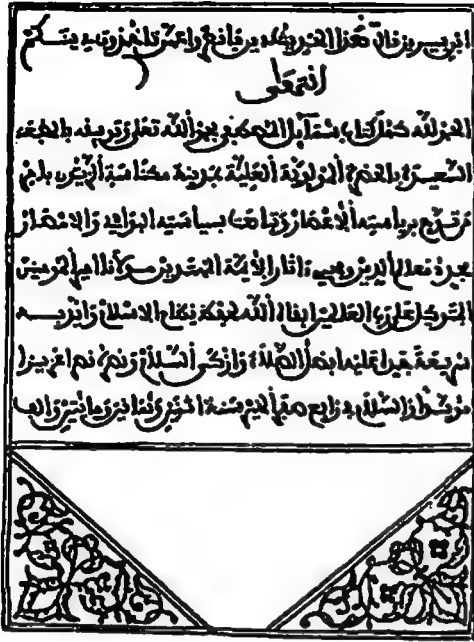 ابن سيرين قال هذا الحديث دين فانظروا عمن تاخذون دينكم
انتهى
الحمد لله كمل كتاب شمآيل المصطفى بحمد الله تعلى وتوفيقه بالمطبعة
السعيدة بالحضرة المولوية العلية بمدينة مكناسة الزيتون
برياسته الاعصار وتاهت بسياسته البوادي والامصار
معالم الدين ومحيي ءاثار الايمة المهتدين مولانا امير المومنين
المتوكل على رب العالمين ابقاه الله لحفظ نظام الاسلام
شريعة عليه افضل الصلاة وازكى السلام عزيزا
والسلام في رابع صفر الخير سنة اثنين وثمانين ومائتين والف